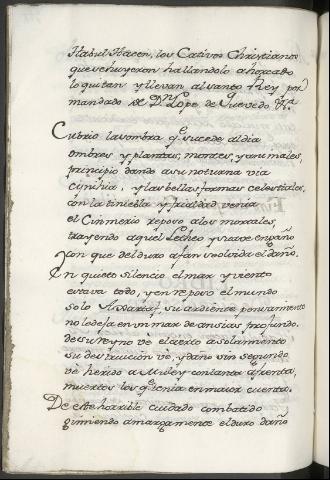 Habul Hacen, los Cativos Christianos
que se huyeron hallandolo ahorcado
lo quitan y llevan al santo Rey por
mandado de Dⁿ Lope de Quevedo &ra
Cubrio la sombra qe sucede al dia
ombres, y plantas, montes, y animales,
principio dando a su noturna via
Cynthia, y las bellas formas celestiales,
con la tiniebla y frialdad venia
el Cinmerio reposo a los mortales,
trayendo aquel Letheo y suave engaño
con que del duro afan se olvida el daño.
En quieto silencio el mar y viento
estava todo, y en reposo el mundo
solo Axartaf, su ardiente pensamiento
no le dexa en un mar de ansias profundo.
de su Reyno ve el cierto asolamiento
su destruicion ve, y daño sin segundo
vè herido a Muley con tanta afrenta,
muertos los qe tenia en maior cuenta.
De este horrible cuidado combatido
gimiendo amargamente el duro daño